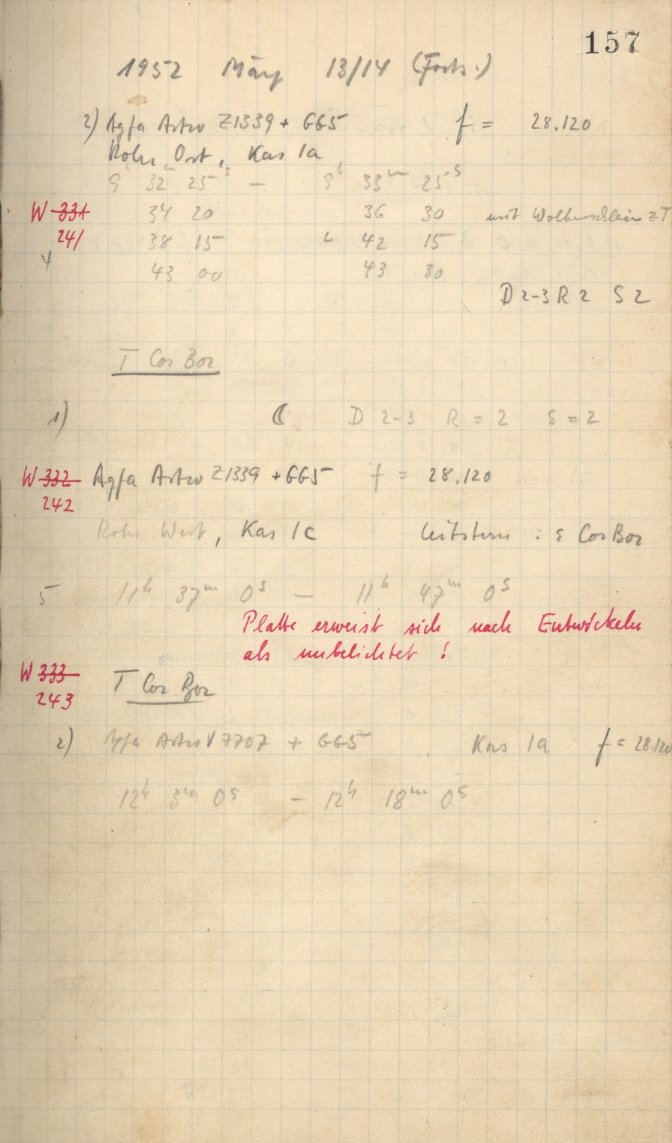 157
1952 März 13/14 (Forts.)
2) Agfa Astro Z1339 + GG5 f = 28.120
Rohr Ost, Kas 1a
9h 32m 25s — 9h 33m 25s
W 331 34 20 36 30 mit Wolkenschleier z T
241 38 15 42 15
4 43 00 43 30
D 2-3 R 2 S 2
T Cor Bor
1) ☾ D 2-3 R = 2 S = 2
W 332 Agfa Astro Z1339 + GG5 f = 28.120
242
Rohr West, Kas 1c Leitstern : ε Cor Bor
5 11h 37m 0s — 11h 47m 0s
Platte erweist sich nach Entwickeln
als unbelichtet !
W 333 T Cor Bor
243
2) Agfa Astro V 7707 + GG5 Kas 1a f = 28.120
12h 3m 0s — 12h 18m 0s